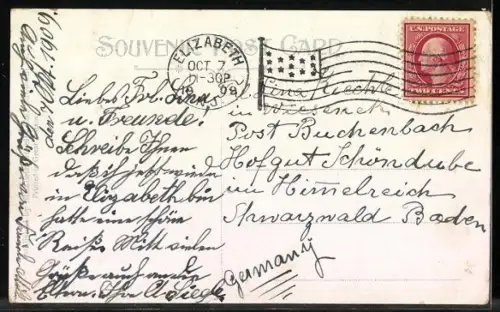 SOUVENIR POST CARD
ELIZABETH
OCT 7
1-30P
1909
N.J.
U.S. POSTAGE
TWO CENTS
Liebes Frl. Lina
u. Freunde!
Schreibe Ihnen
daß ich jetzt wieder
in Elizabeth bin
hatte eine schöne
Reise. Mitt vielen
Grüße auch an die
Eltern. Ihr A. Siegle
Lina Kuechle
in Wieseneck
Post Buchenbach
Hofgut Schöndube
im Himelreich
Schwarzwald Baden
Germany
1909